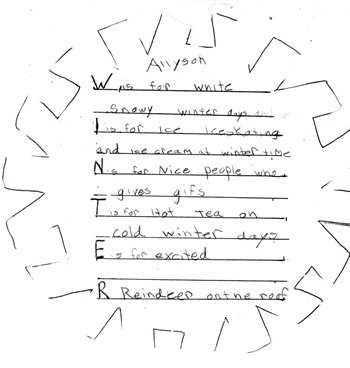 Allyson
W is for white
snowy winter days and
I is for Ice Iceskating
and ice cream at winter time
N is for Nice people who
gives gifs
T is for Hot Tea on
cold winter days
E is for excited
R Reindeer on the roof